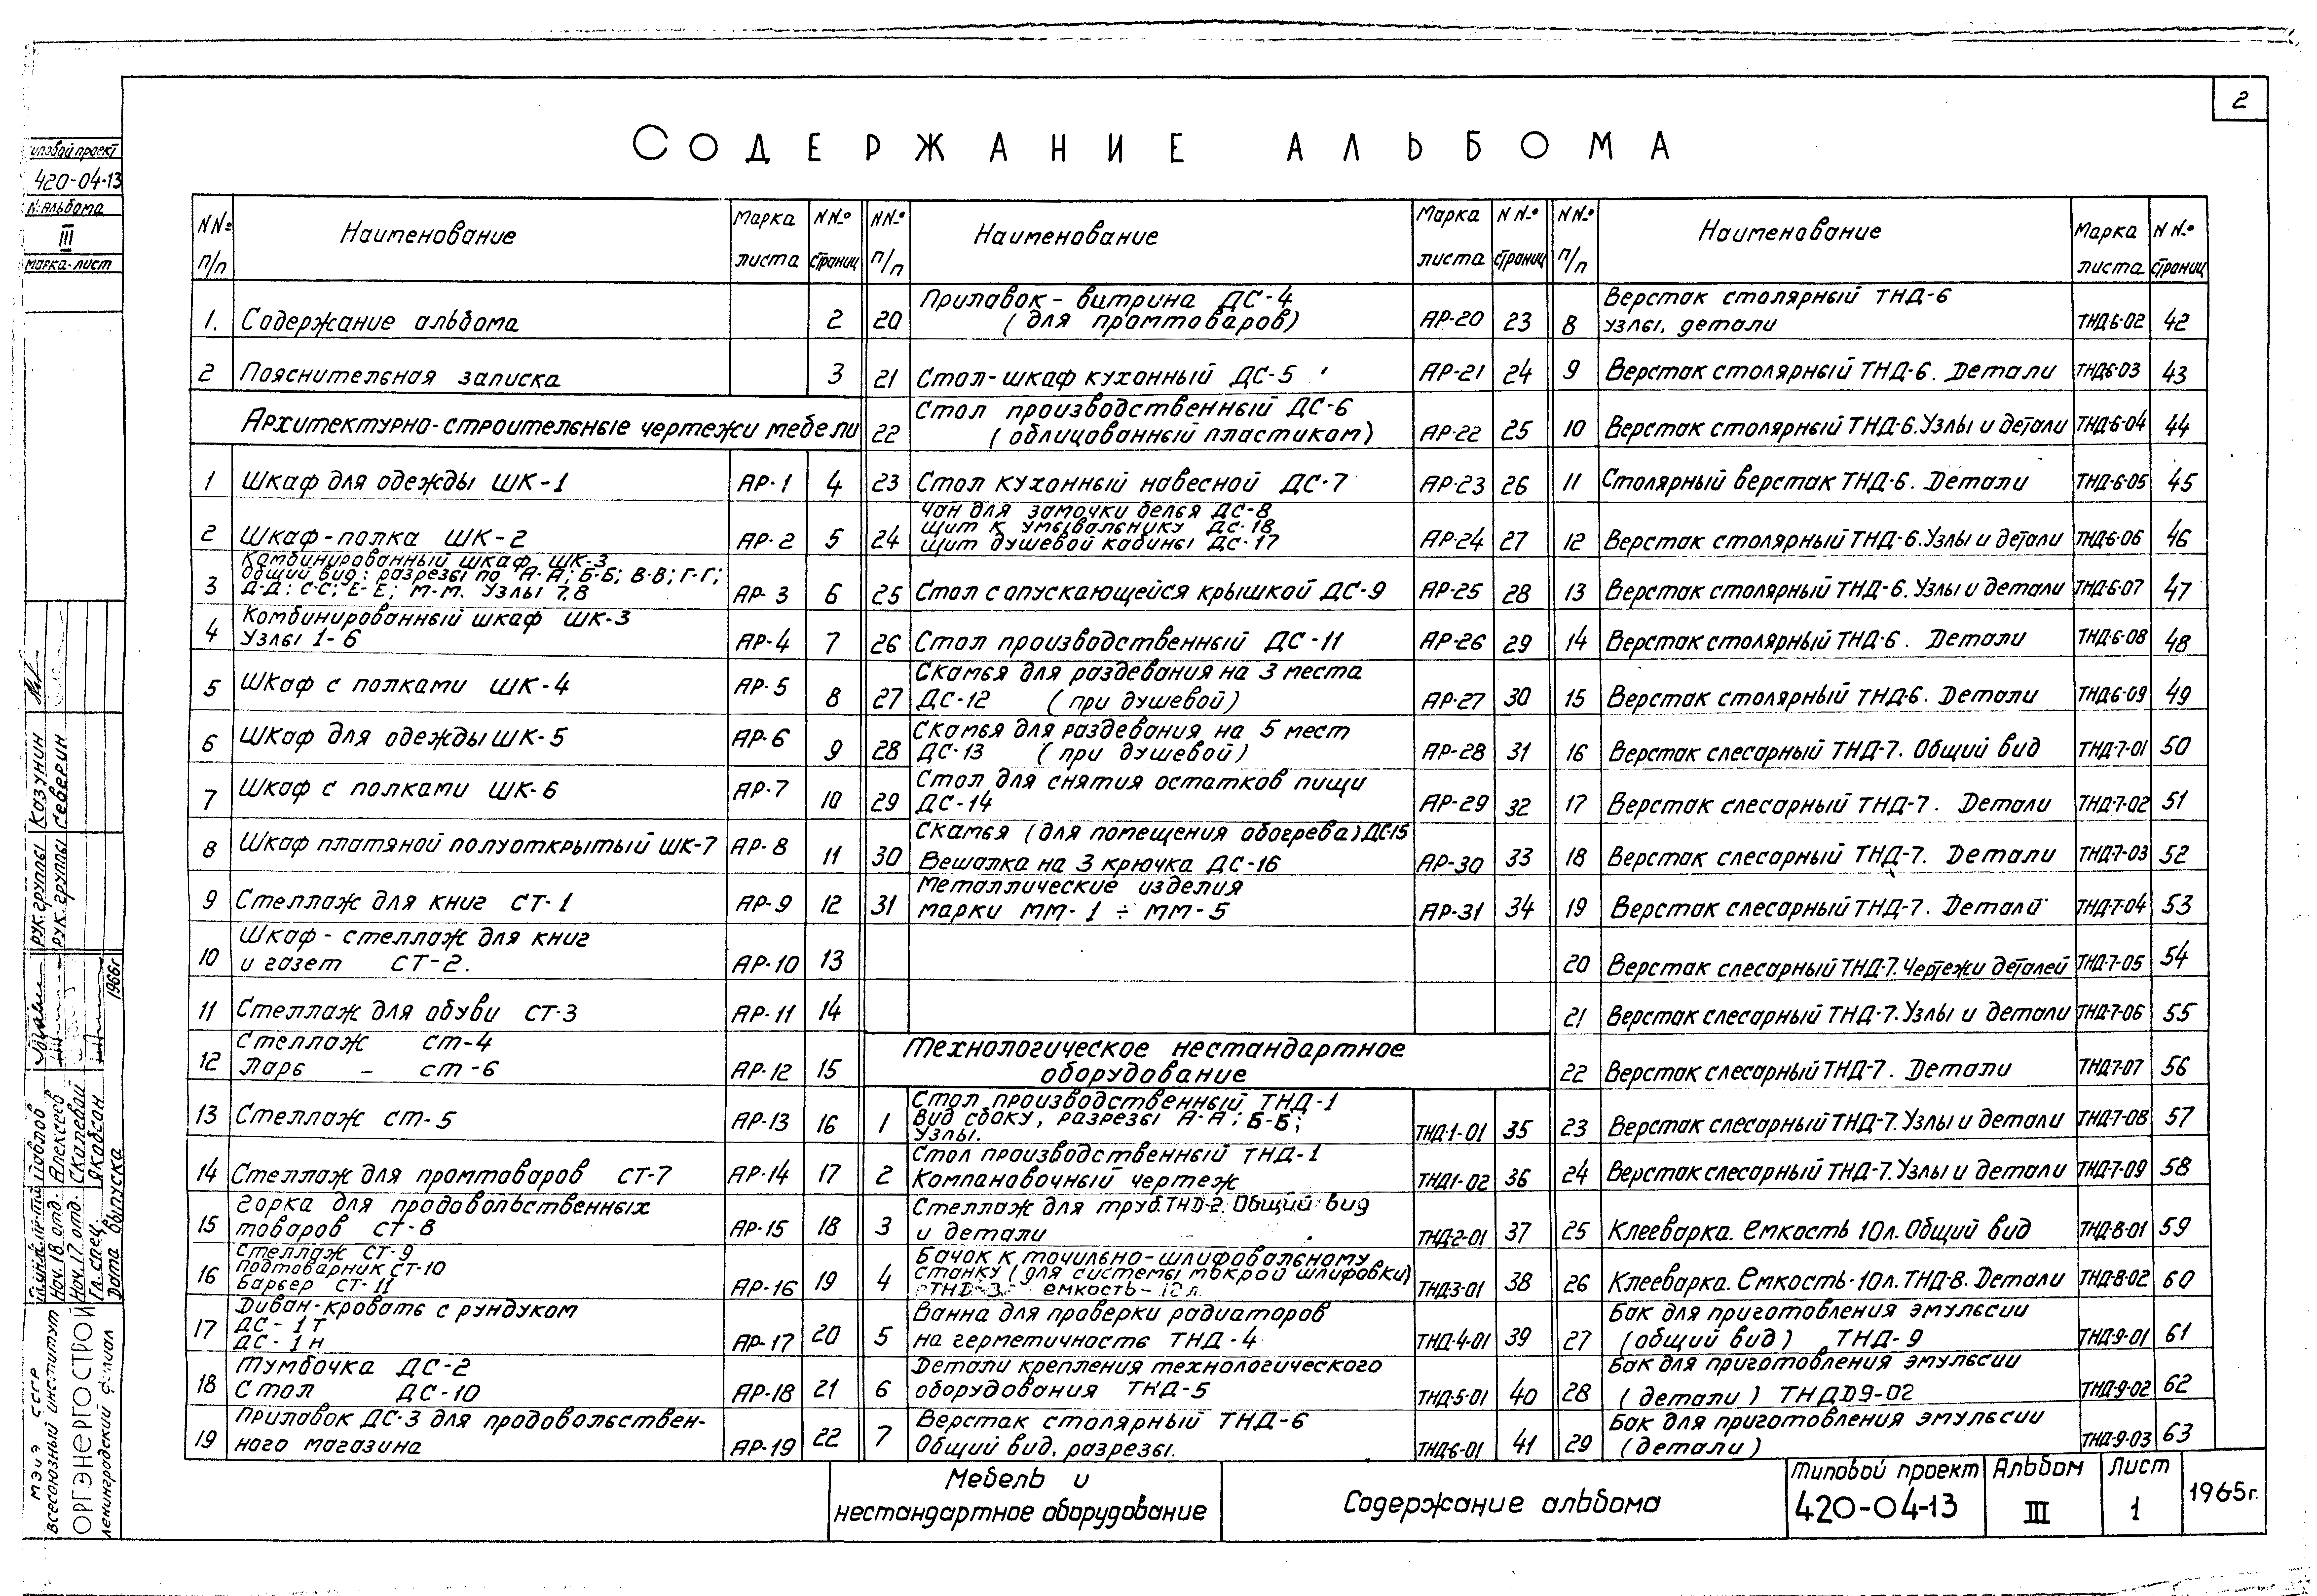 2
СОДЕРЖАНИЕ АЛЬБОМА
Типовой проект
420-04-13
N: Альбома
III
Марка-лист
NN: п/п | Наименование | Марка листа | NN: страниц
1. Содержание альбома 2
2 Пояснительная записка 3
Архитектурно-строительные чертежи мебели
1 Шкаф для одежды ШК-1 АР-1 4
2 Шкаф-полка ШК-2 АР-2 5
3 Комбинированный шкаф ШК-3
Общий вид: разрезы по А-А; Б-Б; В-В; Г-Г;
Д-Д: С-С; Е-Е; М-М. Узлы 7,8 АР-3 6
4 Комбинированный шкаф ШК-3
Узлы 1-6 АР-4 7
5 Шкаф с полками ШК-4 АР-5 8
6 Шкаф для одежды ШК-5 АР-6 9
7 Шкаф с полками ШК-6 АР-7 10
8 Шкаф платяной полуоткрытый ШК-7 АР-8 11
9 Стеллаж для книг СТ-1 АР-9 12
10 Шкаф-стеллаж для книг
и газет СТ-2. АР-10 13
11 Стеллаж для обуви СТ-3 АР-11 14
12 Стеллаж СТ-4
Ларь - СТ-6 АР-12 15
13 Стеллаж СТ-5 АР-13 16
14 Стеллаж для промтоваров СТ-7 АР-14 17
15 Горка для продовольственных
товаров СТ-8 АР-15 18
16 Стеллаж СТ-9
Подтоварник СТ-10
Барьер СТ-11 АР-16 19
17 Диван-кровать с рундуком
ДС-1Т
ДС-1Н АР-17 20
18 Тумбочка ДС-2
Стол ДС-10 АР-18 21
19 Прилавок ДС-3 для продовольствен-
ного магазина АР-19 22
NN: п/п | Наименование | Марка листа | NN: страниц
20 Прилавок-витрина ДС-4
(для промтоваров) АР-20 23
21 Стол-шкаф кухонный ДС-5 АР-21 24
22 Стол производственный ДС-6
(облицованный пластиком) АР-22 25
23 Стол кухонный навесной ДС-7 АР-23 26
24 Чан для замочки белья ДС-8
Щит к умывальнику ДС-18
Щит душевой кабины ДС-17 АР-24 27
25 Стол с опускающейся крышкой ДС-9 АР-25 28
26 Стол производственный ДС-11 АР-26 29
27 Скамья для раздевания на 3 места
ДС-12 (при душевой) АР-27 30
28 Скамья для раздевания на 5 мест
ДС-13 (при душевой) АР-28 31
29 Стол для снятия остатков пищи
ДС-14 АР-29 32
30 Скамья (для помещения обогрева) ДС-15
Вешалка на 3 крючка ДС-16 АР-30 33
31 Металлические изделия
марки ММ-1 ÷ ММ-5 АР-31 34
Технологическое нестандартное
оборудование
1 Стол производственный ТНД-1
Вид сбоку, разрезы А-А; Б-Б;
Узлы. ТНД-1-01 35
2 Стол производственный ТНД-1
Компановочный чертеж ТНД1-02 36
3 Стеллаж для труб. ТНД-2. Общий вид
и детали ТНД-2-01 37
4 Бачок к точильно-шлифовальному
станку (для системы мокрой шлифовки)
ТНД-3 емкость-12л. ТНД-3-01 38
5 Ванна для проверки радиаторов
на герметичность ТНД-4 ТНД-4-01 39
6 Детали крепления технологического
оборудования ТНД-5 ТНД-5-01 40
7 Верстак столярный ТНД-6
Общий вид, разрезы. ТНД-6-01 41
NN: п/п | Наименование | Марка листа | NN: страниц
8 Верстак столярный ТНД-6
узлы, детали ТНД-6-02 42
9 Верстак столярный ТНД-6. Детали ТНД-6-03 43
10 Верстак столярный ТНД-6. Узлы и детали ТНД-6-04 44
11 Столярный верстак ТНД-6. Детали ТНД-6-05 45
12 Верстак столярный ТНД-6. Узлы и детали ТНД-6-06 46
13 Верстак столярный ТНД-6. Узлы и детали ТНД-6-07 47
14 Верстак столярный ТНД-6. Детали ТНД-6-08 48
15 Верстак столярный ТНД-6. Детали ТНД-6-09 49
16 Верстак слесарный ТНД-7. Общий вид ТНД-7-01 50
17 Верстак слесарный ТНД-7. Детали ТНД-7-02 51
18 Верстак слесарный ТНД-7. Детали ТНД-7-03 52
19 Верстак слесарный ТНД-7. Детали ТНД-7-04 53
20 Верстак слесарный ТНД-7. Чертежи деталей ТНД-7-05 54
21 Верстак слесарный ТНД-7. Узлы и детали ТНД-7-06 55
22 Верстак слесарный ТНД-7. Детали ТНД-7-07 56
23 Верстак слесарный ТНД-7. Узлы и детали ТНД-7-08 57
24 Верстак слесарный ТНД-7. Узлы и детали ТНД-7-09 58
25 Клееварка. Емкость 10л. Общий вид ТНД-8-01 59
26 Клееварка. Емкость-10л. ТНД-8. Детали ТНД-8-02 60
27 Бак для приготовления эмульсии
(общий вид) ТНД-9 ТНД-9-01 61
28 Бак для приготовления эмульсии
(детали) ТНДД9-02 ТНД-9-02 62
29 Бак для приготовления эмульсии
(детали) ТНД-9-03 63
Рук. группы Казунин
Рук. группы Северин
Павлов
Нач. 18 отд. Алексеев
Нач. 17 отд. Сколевой
Гл. спец. Якобсон
Дата выпуска 1966г
МЭиЭ СССР
Всесоюзный институт
ОРГЭНЕРГОСТРОЙ
Ленинградский филиал
Мебель и
нестандартное оборудование
Содержание альбома
Типовой проект
420-04-13
Альбом
III
Лист
1
1965г.